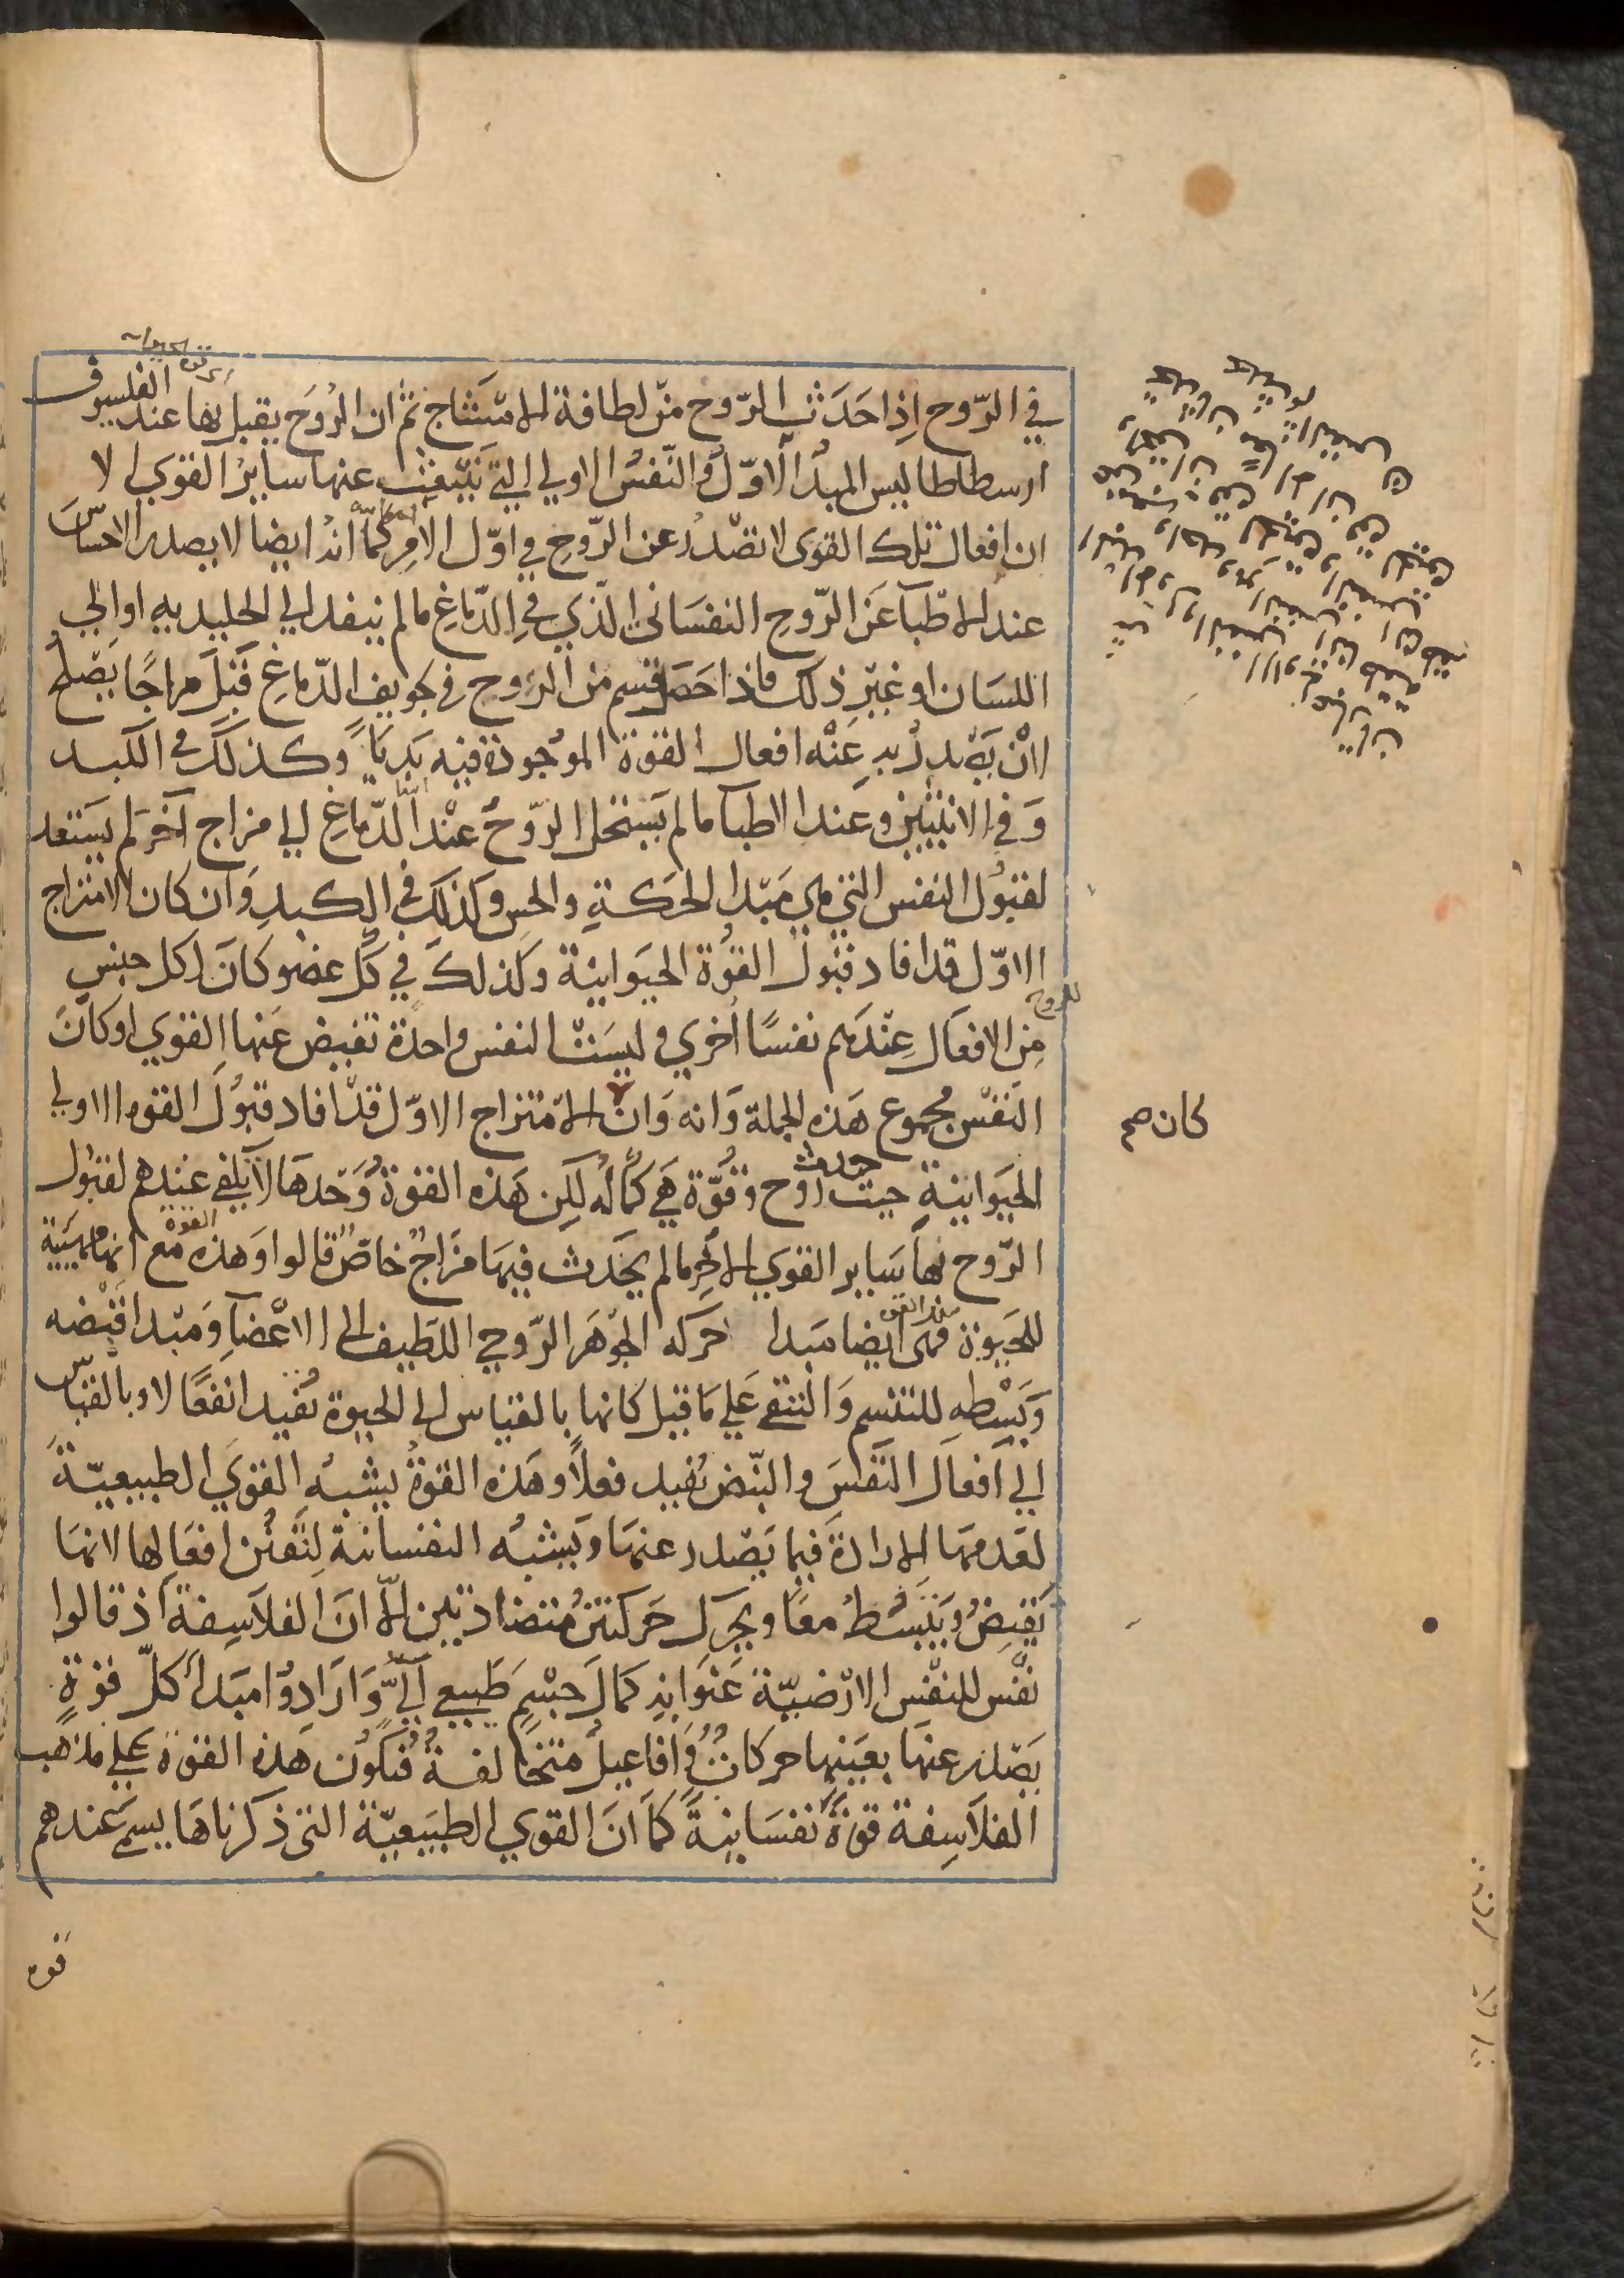 في الرّوح اِذا حَدَثت الرّوح مِن لطافة الامتشاج ثم ان الرُوحَ يقبل بها عند الفيلسوف
ارسطاطاليس المبدأ الاوّل والنّفسُ الاولي التي تنبعث عنها ساير القوي الا
ان افعال تلك القوى لا تصْدُر عن الرّوحِ في اوّل الامر كما انه ايضا لا يصدر الاحساسَ
عند الاطبآ عَن الرّوح النفسَاني الذي في الدّماغِ مالم ينفد الي الجليديه او الي
اللسَان او غيْر ذلك فاذا حَصَل قسم من الروح في تجويف الدّماغِ قَبلَ مزاجًا يَصْلحُ
لان يَصْدرُ به عَنْه افعال القوة الموُجودة فيه بَديَاً وكذلك في الكبد
وَ في الانثيين وعند الاطبآ مالم يَستحل الرّوحُ عنْد الدّماغِ الي مزاج آخرَ لم يستعد
لقبُول النفس التي هي مَبْدا الحَركةِ والحس وكذلك في الكبدِ وَان كان الامتزاج
الاوّل قد افاد قبُول القُوة الحيَوانيّة وكذلك في كلّ عضو كانَ لكل جنسٍ
للروح
مِن الافعَال عِنْدَهم نفسًا اُخري وليسَتْ النفس واحدة تفيض عَنها القوي او كانَ
النَفسْ مجموع هَذه الجملة وَانه وَان الامتزاج الاوّل قدْ افاد قبُولَ القوه الاولي
كان صح
الحيَوانيّةِ حيث حدث روح وقُوّة هَي كمَاله لكن هَذه القوةُ وَحْدهَا لا يكفي عندهم لقبُول
الرّوح بهَا سَاير القوي الاخرِ مالم يَحْدث فيهَا مزَاج خاصّ قالوا وَهذه القوة مع انها مهيئة
للحيوة فهى ايضا مَبدا حركة الجوْهر الرّوحي اللطيف الى الاعْضآِ وَمبْدا قبْضه
وَبَسْطهِ للتنسم وَالتنقي عَلي مَا قيل كانها بالقياس الي الحيوة تُفيد انفعًا لا وبالقياس
الي اَفعَال النَفسَ والنبّض تفيد فعلاً وهَذه القوةُ يشْبهُ القويَ الطبيعيّةَ
لعَدمهَا الارادةَ فيما يَصْدر عنهَا وَيشْبهُ النفسانيّة لتَفنُن افعَالها لانهَا
يَقبضُ ويَنبسُطُ معًا ويحَرّك حَركتين مُتضادتيين الاّ انَ الفلاَسِفة اذ قالوا
نفْس للنفْس الارْضيّة عَنَوا به كمَالَ جسْمٍ طَبيعي آلَيٍّ وَارَادوُا مَبَدأ كلّ قوةٍ
يَصْدر عنهَا بعَينها حركاتٌ وَ افاعيلُ متخالفةُ فتكوُن هَذه القوة علي مذهب
الفلاَسِفة قوةً نفسَانيةَ كمَا انَ القوي الطبيَعيّة التي ذكرناهَا يسمىَ عندهم
قوه